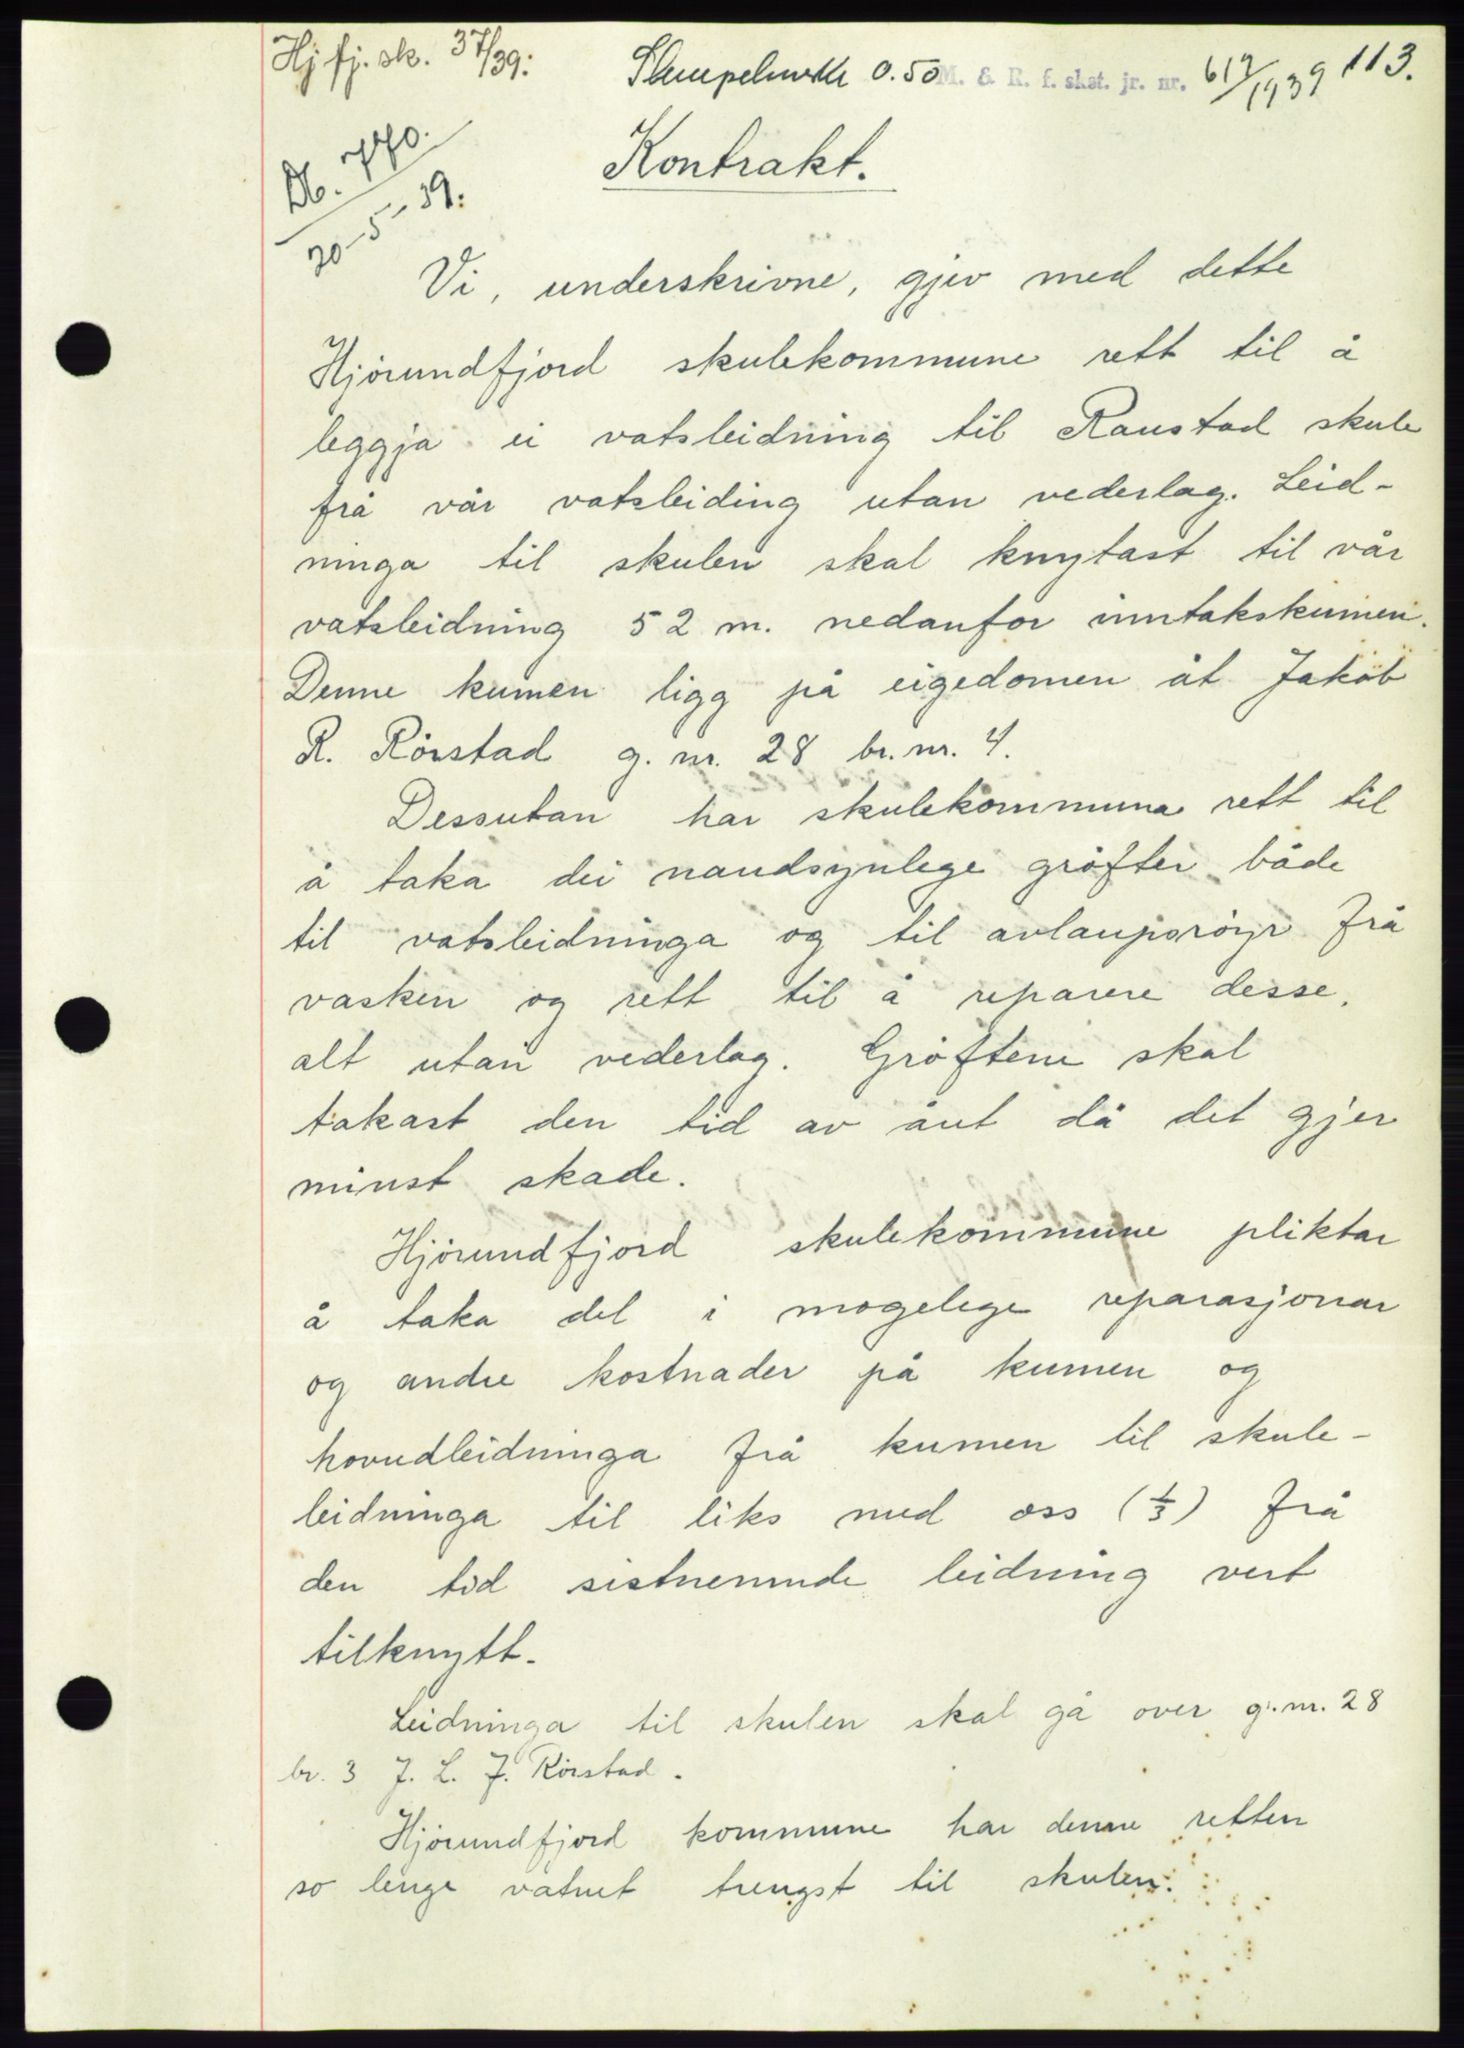 Hj fj. sk. 37/39.
Stempelmerke 0.50 M. & R. f. skst. jr. nr. 617/1939 113.
Db. 770.
20-5-39.
Kontrakt.
Vi, underskrivne, gjev med dette
Hjørundfjord skulekommune rett til å
leggja ei vatsleidning til Raustad skule
frå vår vatsleiding utan vederlag. Leid-
ninga til skulen skal knytast til vår
vatsleidning 52 m. nedanfor inntakskumen.
Denne kumen ligg på eigedomen åt Jakob
R. Rörstad g. nr. 28 br. nr. 4.
Dessutan har skulekommuna rett til
å taka dei naudsynlege gröfter både
til vatsleidninga og til avlaupsröyr frå
vasken og rett til å reparere desse,
alt utan vederlag. Gröftene skal
takast den tid av året då det gjer
minst skade.
Hjörundfjord skulekommune pliktar
å taka del i mogelege reparasjonar
og andre kostnader på kumen og
hovudleidninga frå kumen til skule-
leidninga til liks med oss (1/3) frå
den tid sistnemnde leidning vert
tilknytt.
Leidninga til skulen skal gå over g. nr. 28
br. 3 J. L. J. Rörstad.
Hjörundfjord kommune har denne retten
so lenge vatnet trengst til skulen.